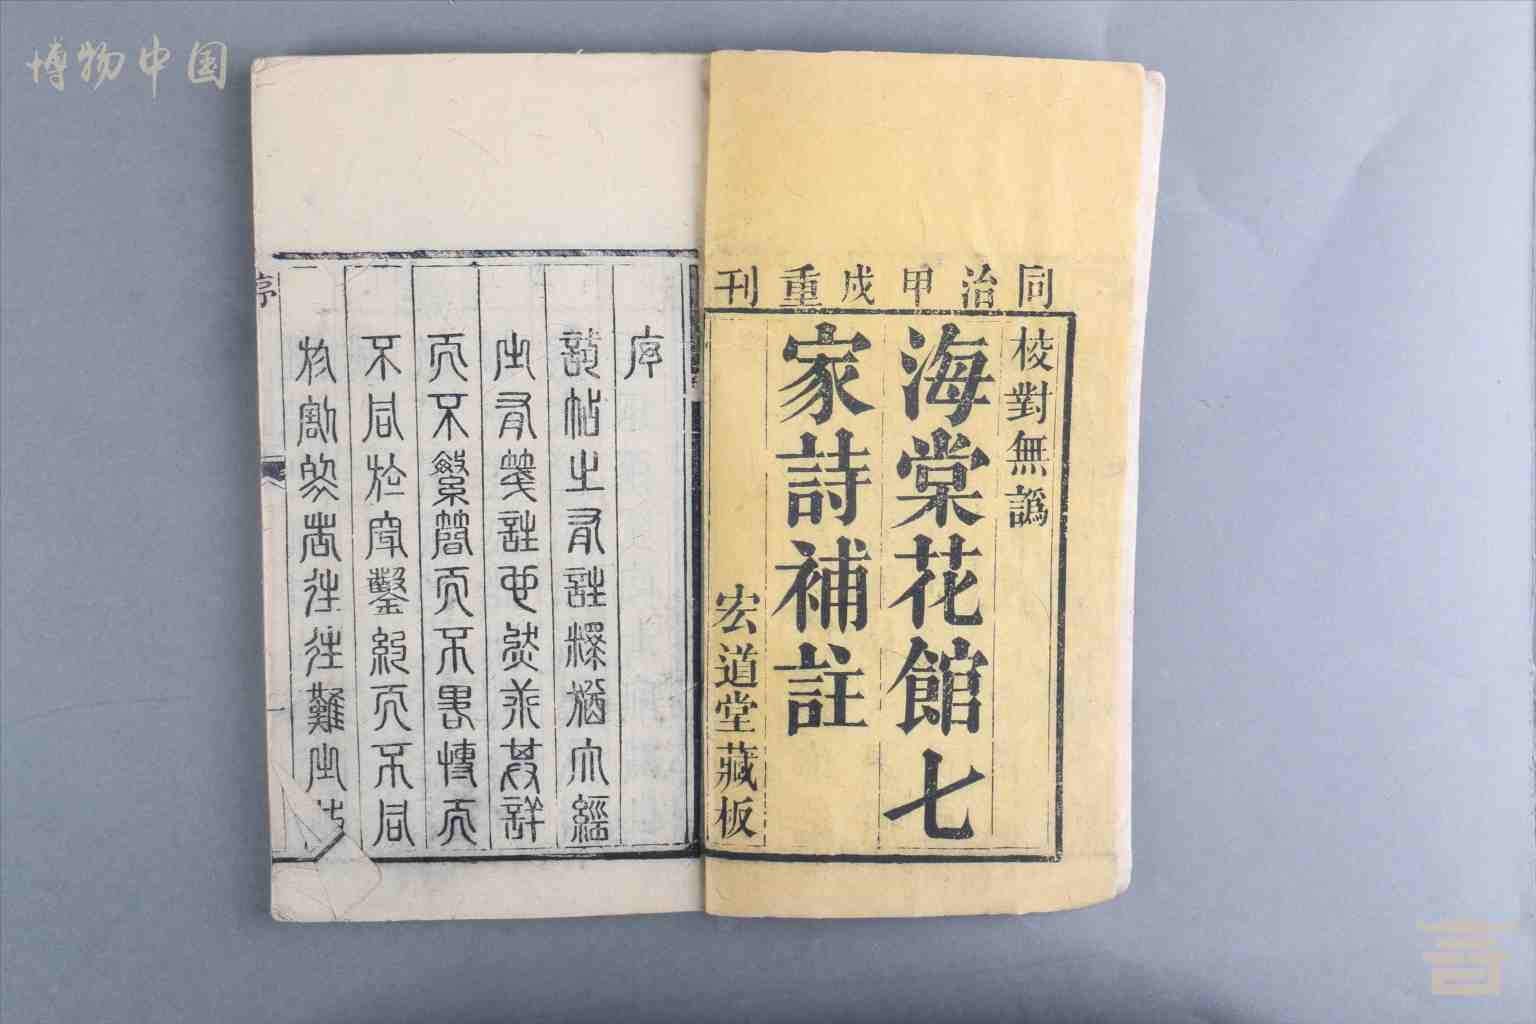 博物中国
同治甲戌重刊
校對無譌
海棠花館七
家詩補註
宏道堂藏板
序
試帖之有註釋猶六經
之有箋註也然求其詳
而不繁簡而不畧博而
不同於穿鑿約而不同
於割裂者往往難之
序
言